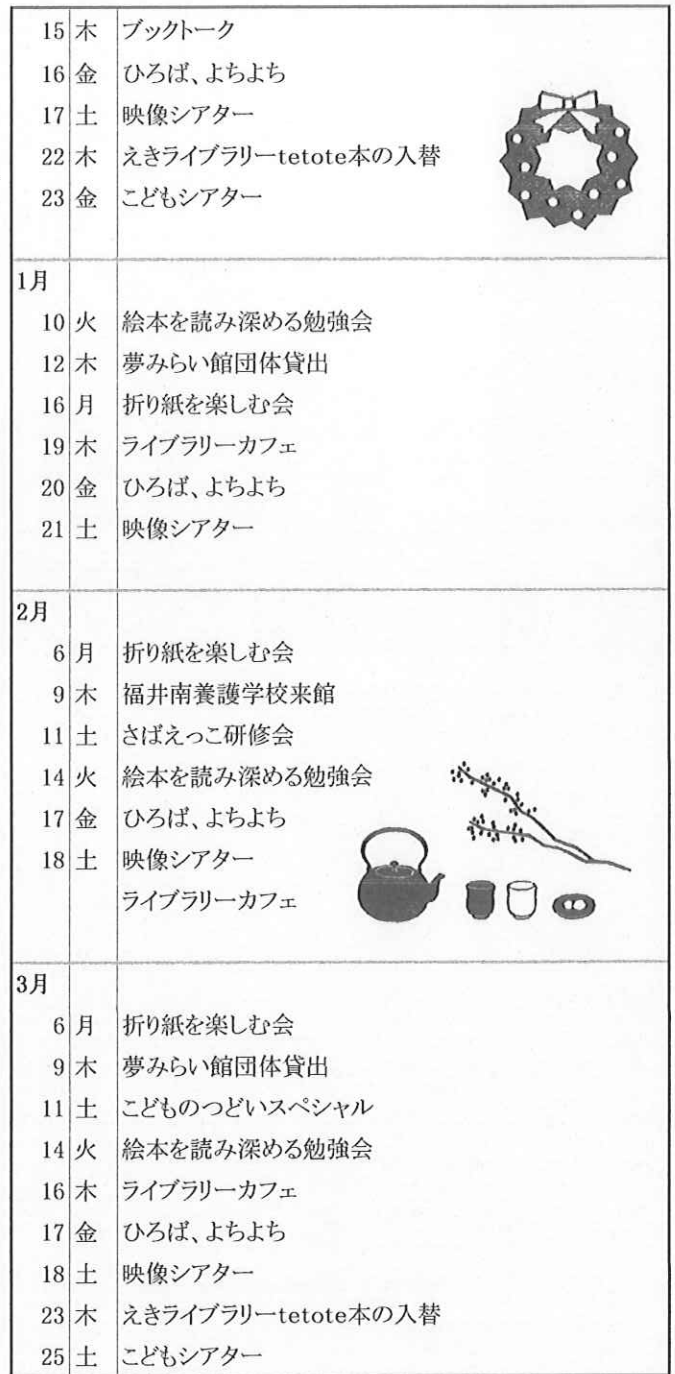 15 木 ブックトーク
16 金 ひろば、よちよち
17 土 映像シアター
22 木 えきライブラリーtetote本の入替
23 金 こどもシアター
1月
10 火 絵本を読み深める勉強会
12 木 夢みらい館団体貸出
16 月 折り紙を楽しむ会
19 木 ライブラリーカフェ
20 金 ひろば、よちよち
21 土 映像シアター
2月
6 月 折り紙を楽しむ会
9 木 福井南養護学校来館
11 土 さばえっこ研修会
14 火 絵本を読み深める勉強会
17 金 ひろば、よちよち
18 土 映像シアター
ライブラリーカフェ
3月
6 月 折り紙を楽しむ会
9 木 夢みらい館団体貸出
11 土 こどものつどいスペシャル
14 火 絵本を読み深める勉強会
16 木 ライブラリーカフェ
17 金 ひろば、よちよち
18 土 映像シアター
23 木 えきライブラリーtetote本の入替
25 土 こどもシアター